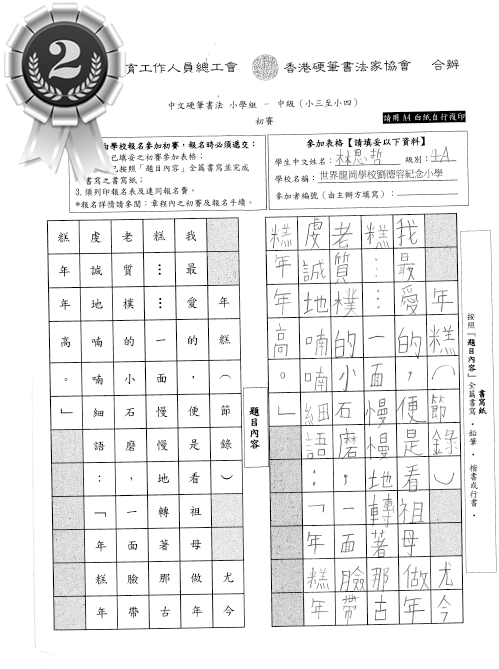 2
育工作人員總工會 香港硬筆書法家協會 合辦
中文硬筆書法 小學組 - 中級（小三至小四）
初賽
請用A4白紙自行複印
由學校報名參加初賽，報名時必須遞交：
已填妥之初賽參加表格；
已按照「題目內容」全篇書寫並完成
書寫之書寫紙；
3. 須列印報名表及連同報名費。
*報名詳情請參閱：章程內之初賽及報名手續。
參加表格【請填妥以下資料】
學生中文姓名：林思哲 級別：4A
學校名稱：世界龍岡學校劉德容紀念小學
參加者編號（由主辦方填寫）：
書寫紙
按照「題目內容」全篇書寫，鉛筆，楷書或行書。
年糕（節錄）尤今
我最愛的，便是看祖母做年
糕……一面慢慢地轉著那古
老質樸的小石磨，一面臉帶
虔誠地喃喃細語：「年糕年
糕年年高。」
題目內容
年糕（節錄）尤今
我最愛的，便是看祖母做年
糕……一面慢慢地轉著那古
老質樸的小石磨，一面臉帶
虔誠地喃喃細語：「年糕年
糕年年高。」